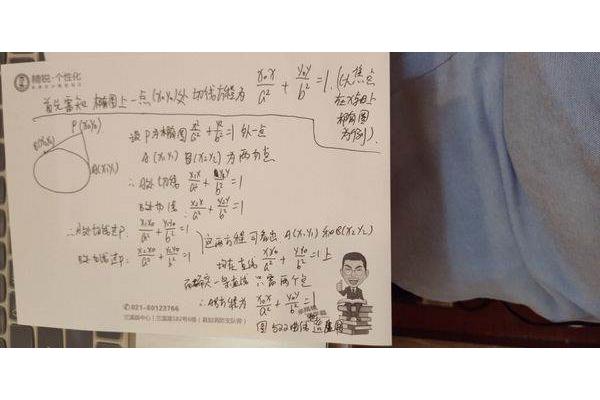 精锐·个性化
首先需知 椭圆上一点(x₀y₀)处 切线方程为 x₀x/a² + y₀y/b² = 1. (以焦点在x轴上椭圆为例).
P(x₀y₀)
B(x₂y₂)
A(x₁y₁)
设P为椭圆 x²/a² + y²/b² = 1 外一点
A(x₁y₁) B(x₂y₂) 为两切点
∴ A处切线 x₁x/a² + y₁y/b² = 1
B处切线: x₂x/a² + y₂y/b² = 1
∴ A处切线过P: x₁x₀/a² + y₁y₀/b² = 1
B处切线过P: x₂x₀/a² + y₂y₀/b² = 1
由两方程可看出 A(x₁y₁) 和B(x₂y₂)
均在直线 x₀x/a² + y₀y/b² = 1 上
而确定一条直线 只需两个点
∴ 线方程为 x₀x/a² + y₀y/b² = 1
021-60123766